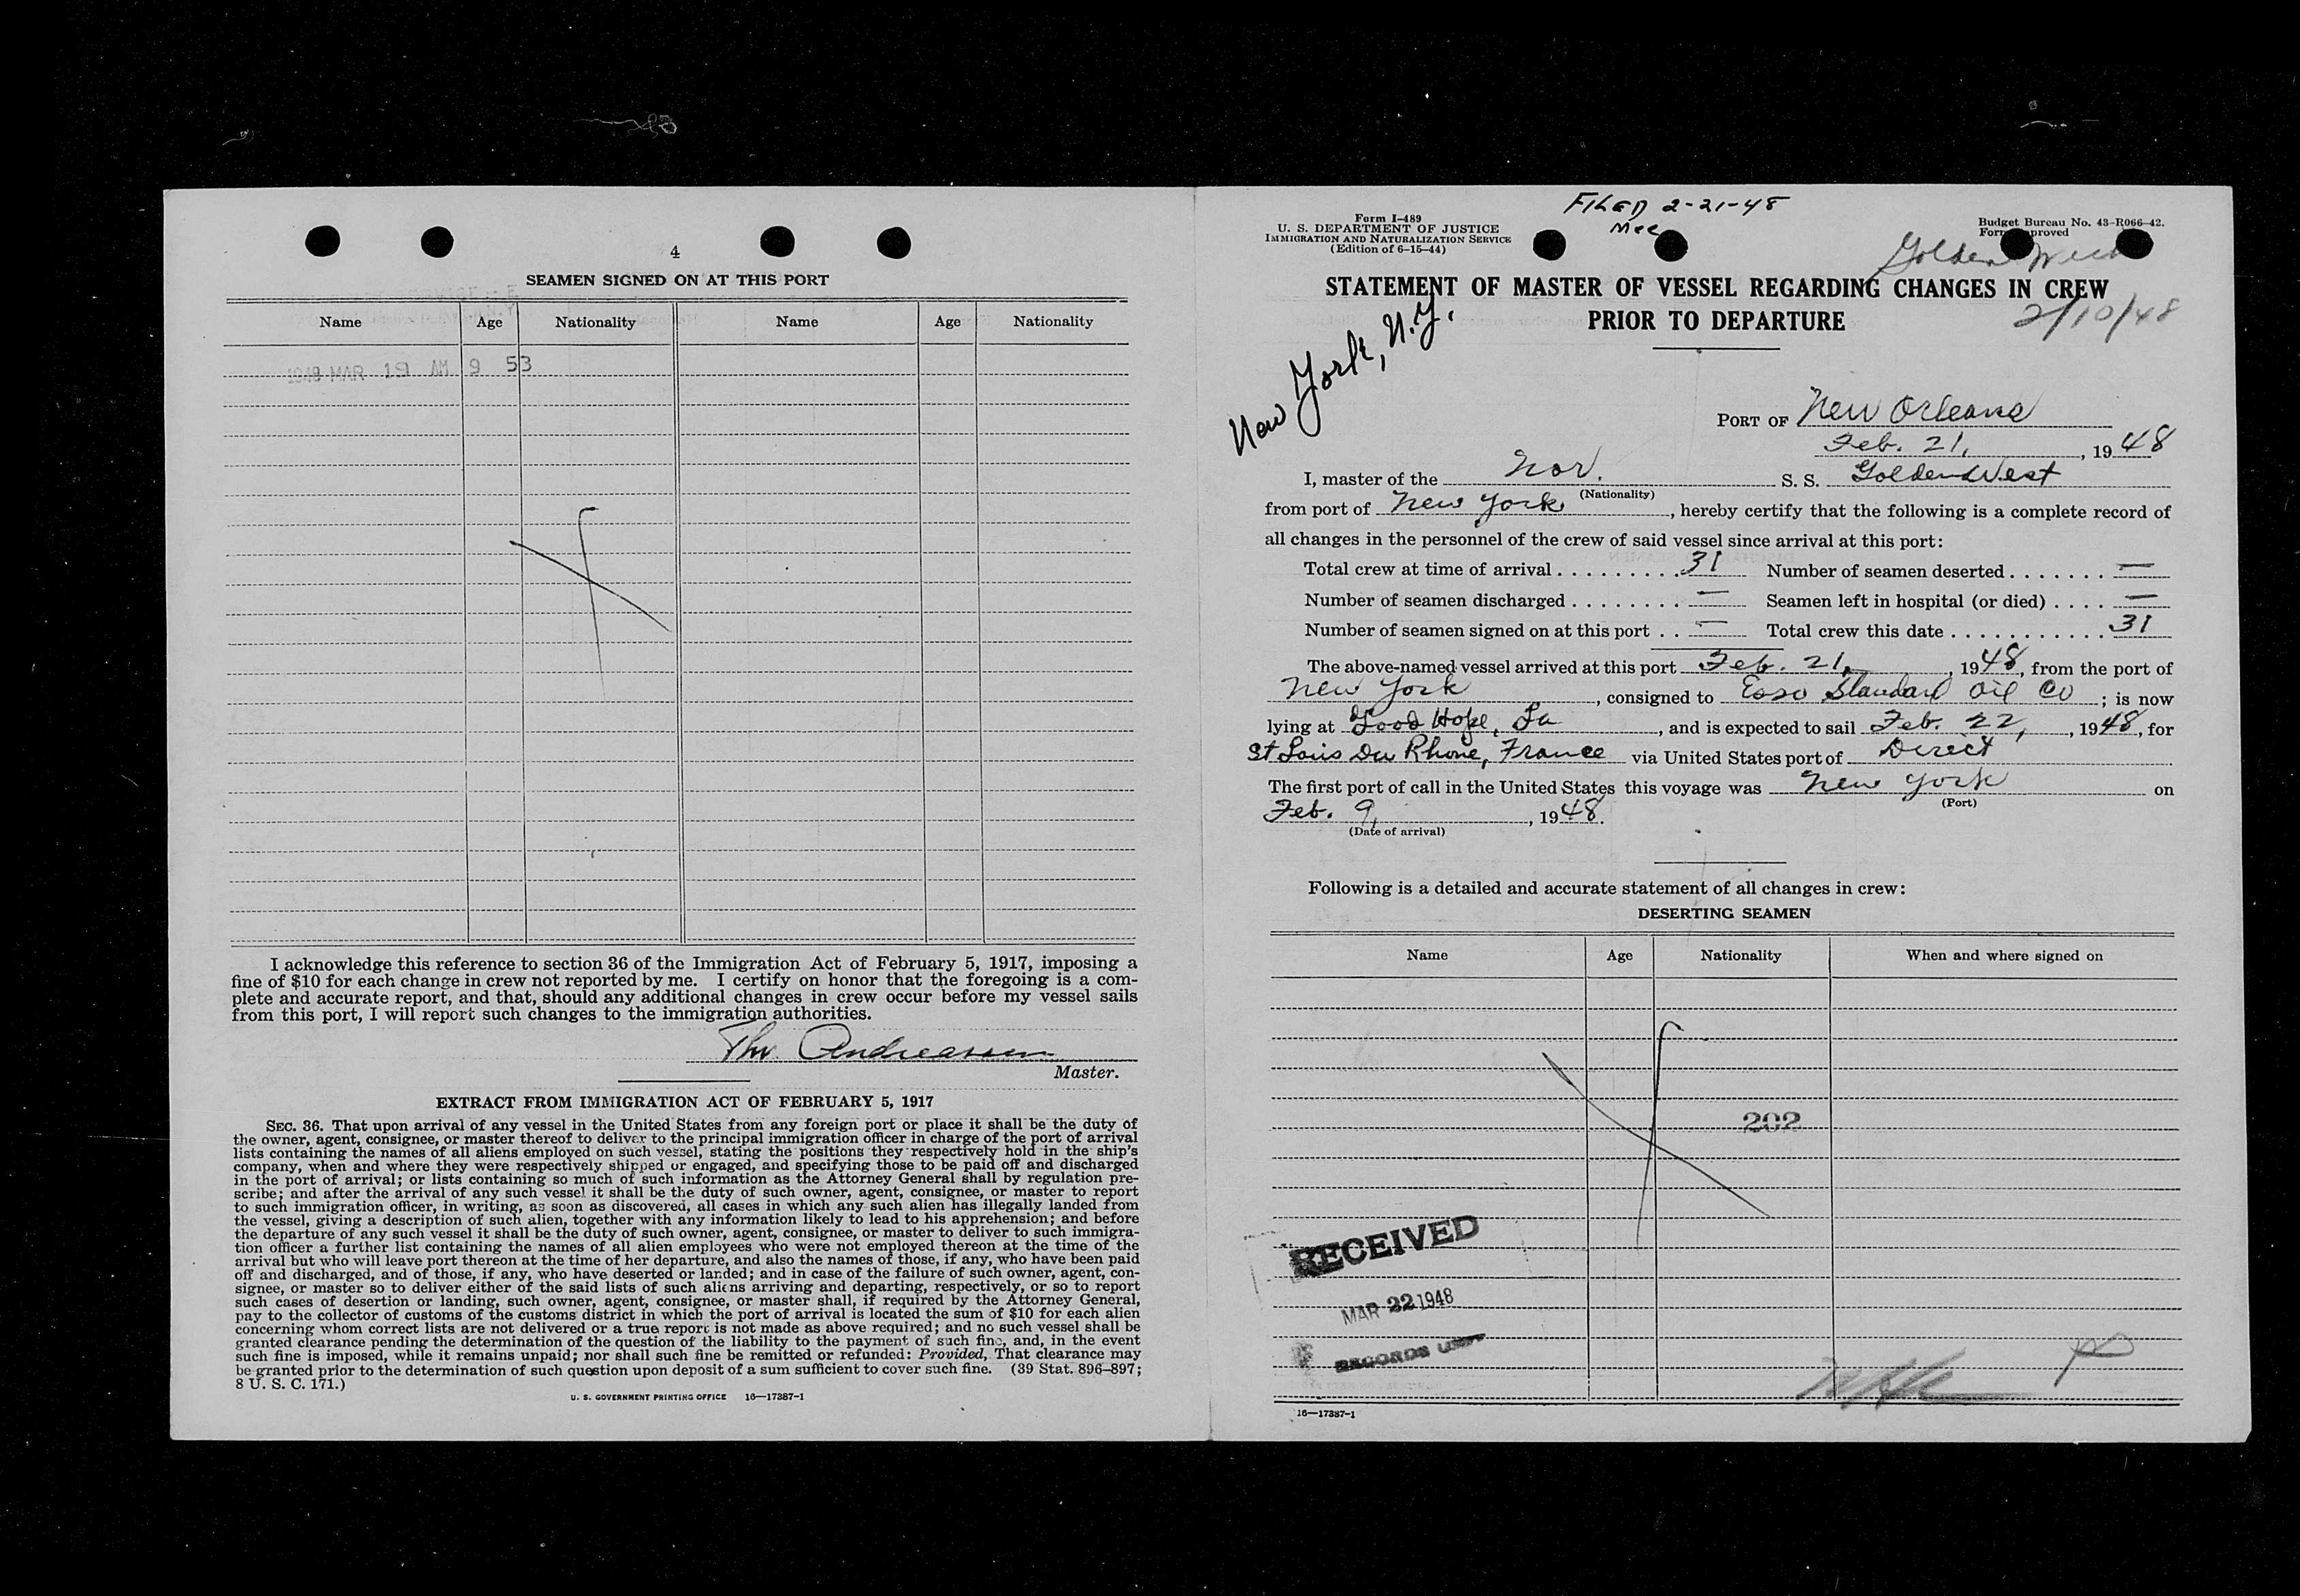 4
SEAMEN SIGNED ON AT THIS PORT
Name Age Nationality Name Age Nationality
1948 MAR 19 AM 9 53
I acknowledge this reference to section 36 of the Immigration Act of February 5, 1917, imposing a
fine of $10 for each change in crew not reported by me. I certify on honor that the foregoing is a com-
plete and accurate report, and that, should any additional changes in crew occur before my vessel sails
from this port, I will report such changes to the immigration authorities.
Thv. Andreassen
Master.
EXTRACT FROM IMMIGRATION ACT OF FEBRUARY 5, 1917
SEC. 36. That upon arrival of any vessel in the United States from any foreign port or place it shall be the duty of
the owner, agent, consignee, or master thereof to deliver to the principal immigration officer in charge of the port of arrival
lists containing the names of all aliens employed on such vessel, stating the positions they respectively hold in the ship's
company, when and where they were respectively shipped or engaged, and specifying those to be paid off and discharged
in the port of arrival; or lists containing so much of such information as the Attorney General shall by regulation pre-
scribe; and after the arrival of any such vessel it shall be the duty of such owner, agent, consignee, or master to report
to such immigration officer, in writing, as soon as discovered, all cases in which any such alien has illegally landed from
the vessel, giving a description of such alien, together with any information likely to lead to his apprehension; and before
the departure of any such vessel it shall be the duty of such owner, agent, consignee, or master to deliver to such immigra-
tion officer a further list containing the names of all alien employees who were not employed thereon at the time of the
arrival but who will leave port thereon at the time of her departure, and also the names of those, if any, who have been paid
off and discharged, and of those, if any, who have deserted or landed; and in case of the failure of such owner, agent, con-
signee, or master so to deliver either of the said lists of such aliens arriving and departing, respectively, or so to report
such cases of desertion or landing, such owner, agent, consignee, or master shall, if required by the Attorney General,
pay to the collector of customs of the customs district in which the port of arrival is located the sum of $10 for each alien
concerning whom correct lists are not delivered or a true report is not made as above required; and no such vessel shall be
granted clearance pending the determination of the question of the liability to the payment of such fine, and, in the event
such fine is imposed, while it remains unpaid; nor shall such fine be remitted or refunded: Provided, That clearance may
be granted prior to the determination of such question upon deposit of a sum sufficient to cover such fine. (39 Stat. 896–897;
8 U. S. C. 171.)
U. S. GOVERNMENT PRINTING OFFICE 16—17387-1
FILED 2-21-48
Form I-489
U. S. DEPARTMENT OF JUSTICE
IMMIGRATION AND NATURALIZATION SERVICE
(Edition of 6-15-44)
Budget Bureau No. 43-R066-42.
Golden West
STATEMENT OF MASTER OF VESSEL REGARDING CHANGES IN CREW
PRIOR TO DEPARTURE
2/10/48
New York, N.Y.
PORT OF New Orleans
Feb. 21, , 19 48
I, master of the Nor. S. S. Golden West
(Nationality)
from port of New York , hereby certify that the following is a complete record of
all changes in the personnel of the crew of said vessel since arrival at this port:
Total crew at time of arrival . . . . . . . . . 31 Number of seamen deserted . . . . . . . —
Number of seamen discharged . . . . . . . . — Seamen left in hospital (or died) . . . . —
Number of seamen signed on at this port . . — Total crew this date . . . . . . . . . . . 31
The above-named vessel arrived at this port Feb. 21, , 1948, from the port of
New York , consigned to Esso Standard Oil Co ; is now
lying at Good Hope, La , and is expected to sail Feb. 22, , 1948, for
St Louis Du Rhone, France via United States port of Direct
The first port of call in the United States this voyage was New York on
(Port)
Feb. 9, , 1948.
(Date of arrival)
Following is a detailed and accurate statement of all changes in crew:
DESERTING SEAMEN
Name Age Nationality When and where signed on
202
RECEIVED
MAR 22 1948
RECORDS UNIT
16—17387-1